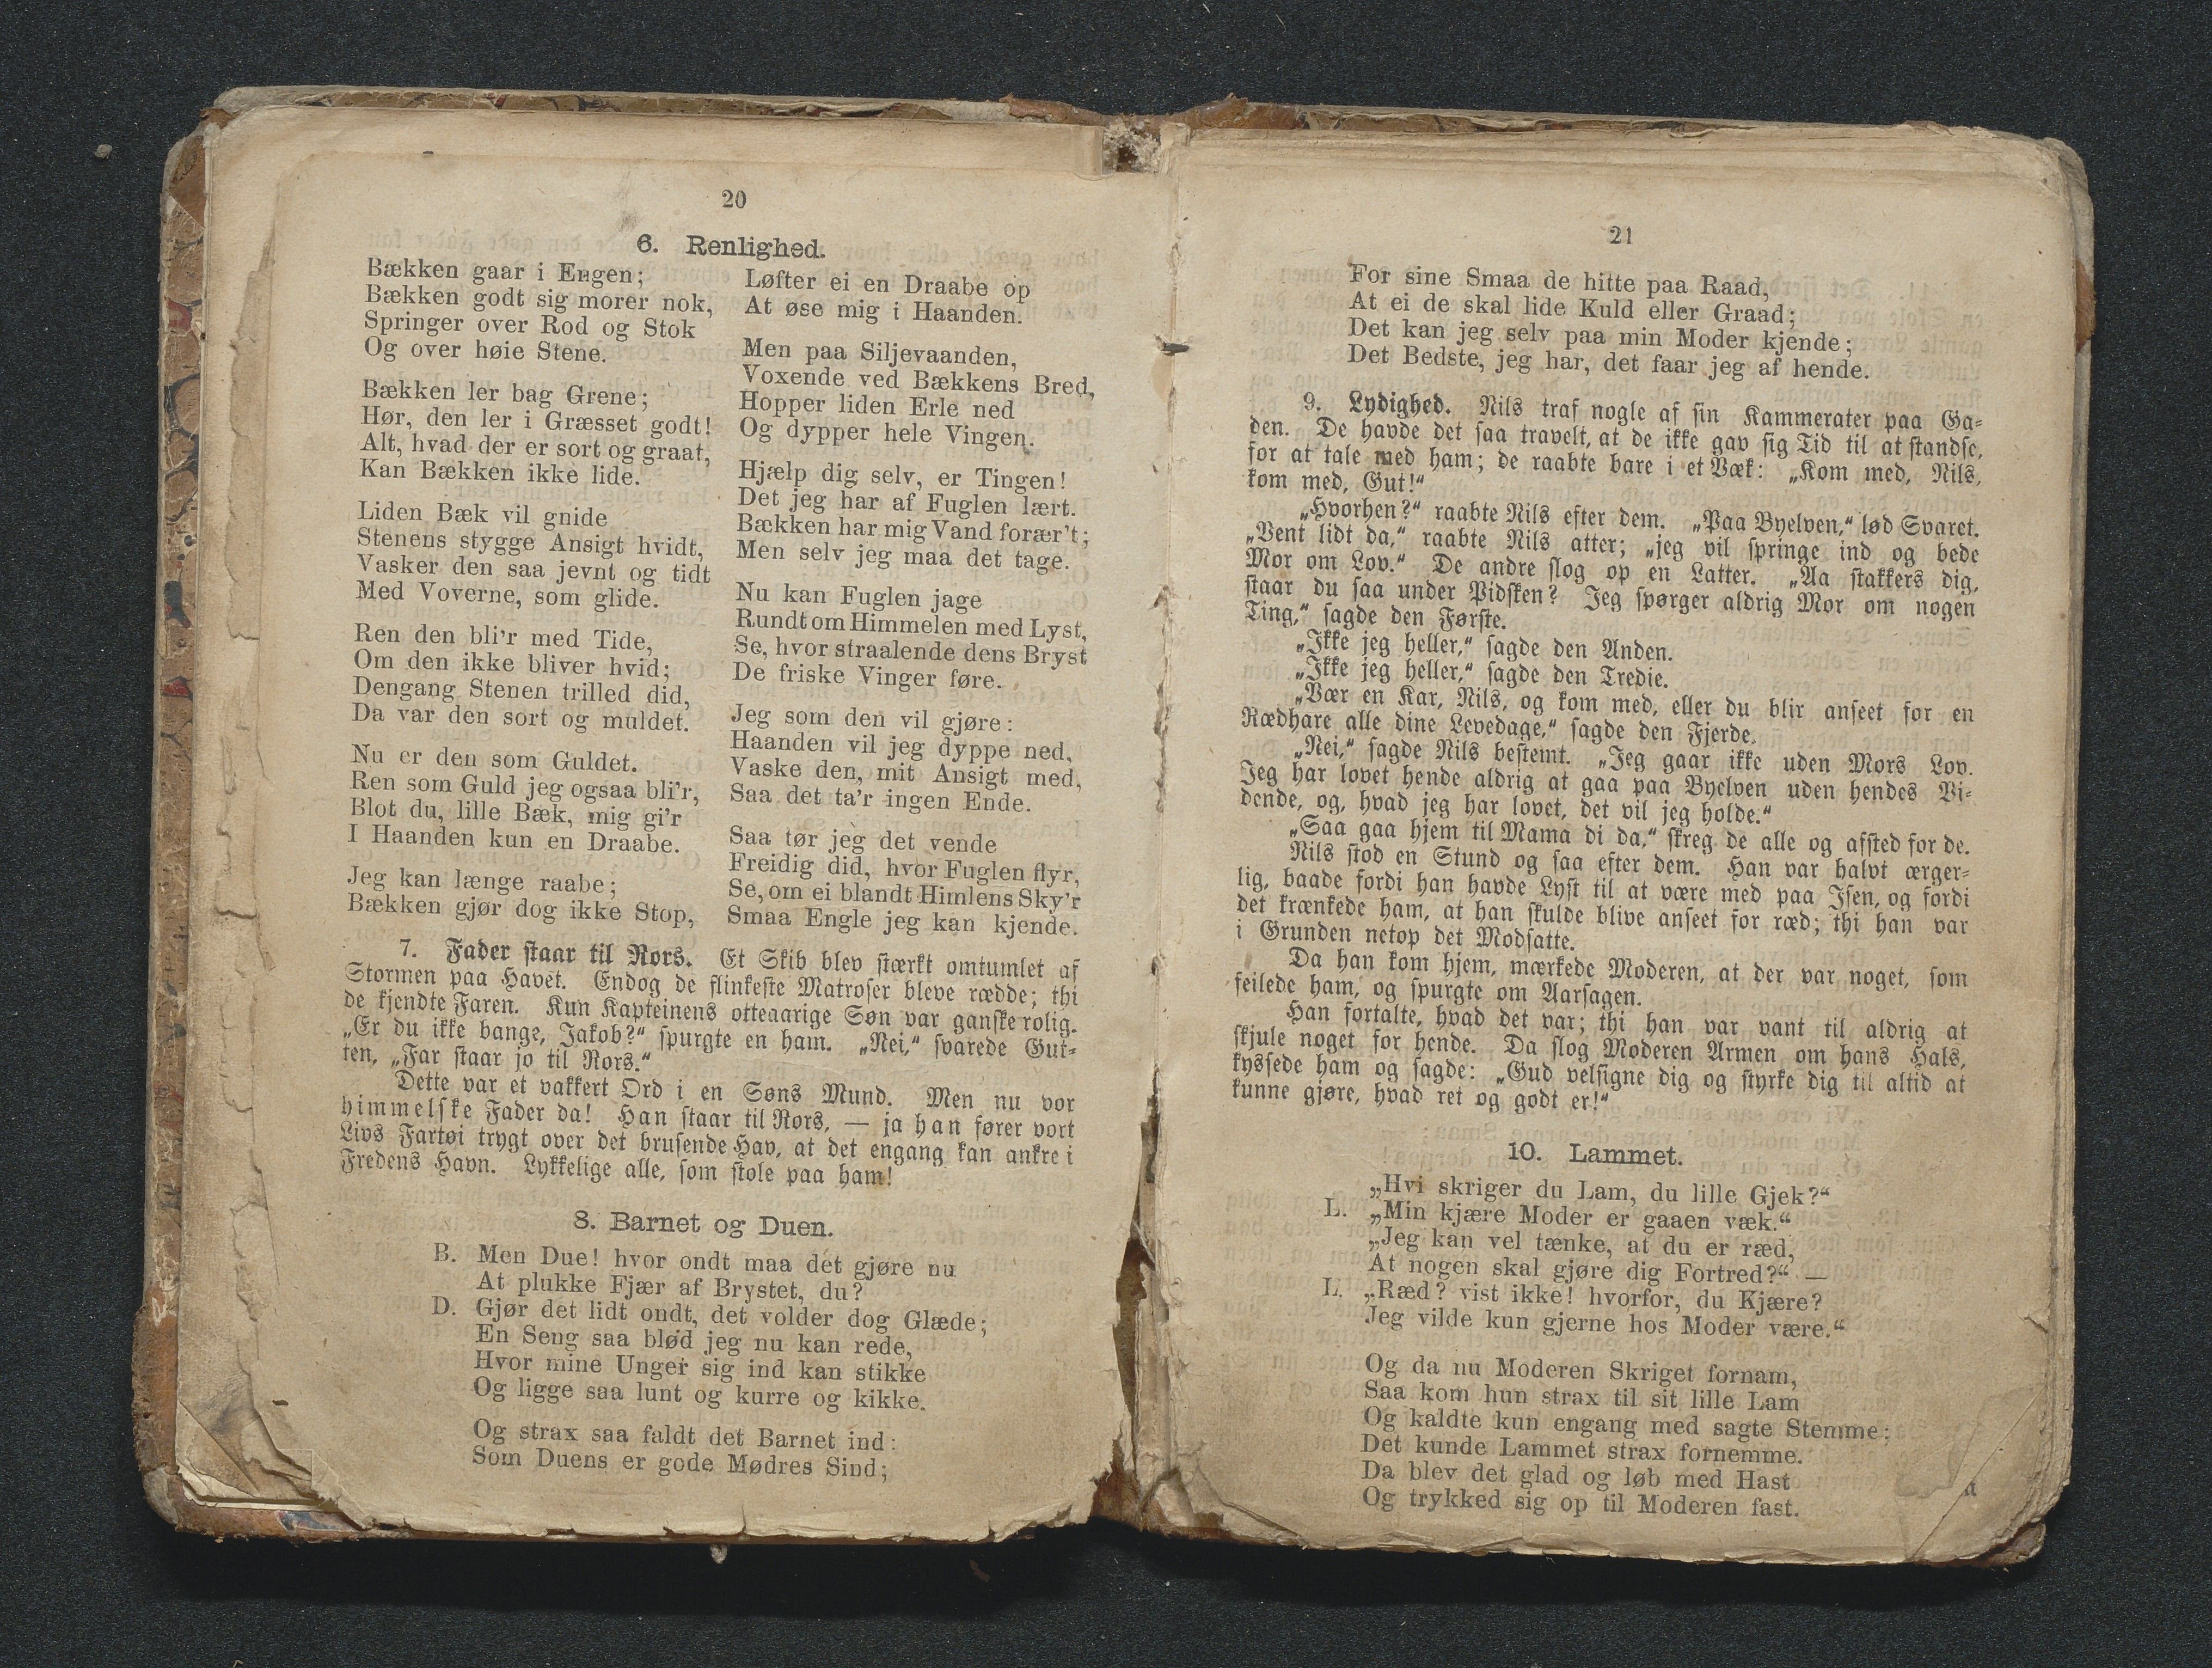 20
6. Renlighed.
Bækken gaar i Engen;
Bækken godt sig morer nok,
Springer over Rod og Stok
Og over høie Stene.
Bækken ler bag Grene;
Hør, den ler i Græsset godt!
Alt, hvad der er sort og graat,
Kan Bækken ikke lide.
Liden Bæk vil gnide
Stenens stygge Ansigt hvidt,
Vasker den saa jevnt og tidt
Med Voverne, som glide.
Ren den bli'r med Tide,
Om den ikke bliver hvid;
Dengang Stenen trilled did,
Da var den sort og muldet.
Nu er den som Guldet.
Ren som Guld jeg ogsaa bli'r,
Blot du, lille Bæk, mig gi'r
I Haanden kun en Draabe.
Jeg kan længe raabe;
Bækken gjør dog ikke Stop,
Løfter ei en Draabe op
At øse mig i Haanden.
Men paa Siljevaanden,
Voxende ved Bækkens Bred,
Hopper liden Erle ned
Og dypper hele Vingen.
Hjælp dig selv, er Tingen!
Det jeg har af Fuglen lært.
Bækken har mig Vand forær't;
Men selv jeg maa det tage.
Nu kan Fuglen jage
Rundt om Himmelen med Lyst,
Se, hvor straalende dens Bryst
De friske Vinger føre.
Jeg som den vil gjøre:
Haanden vil jeg dyppe ned,
Vaske den, mit Ansigt med,
Saa det ta'r ingen Ende.
Saa tør jeg det vende
Freidig did, hvor Fuglen flyr,
Se, om ei blandt Himlens Sky'r
Smaa Engle jeg kan kjende.
7. Fader staar til Rors. Et Skib blev stærkt omtumlet af
Stormen paa Havet. Endog de flinkeste Matroser bleve rædde; thi
de kjendte Faren. Kun Kapteinens otteaarige Søn var ganske rolig.
„Er du ikke bange, Jakob?“ spurgte en ham. „Nei,“ svarede Gut-
ten, „Far staar jo til Rors.“
Dette var et vakkert Ord i en Søns Mund. Men nu vor
himmelske Fader da! Han staar til Rors, — ja han fører vort
Livs Fartøi trygt over det brusende Hav, at det engang kan ankre i
Fredens Havn. Lykkelige alle, som stole paa ham!
8. Barnet og Duen.
B. Men Due! hvor ondt maa det gjøre nu
At plukke Fjær af Brystet, du?
D. Gjør det lidt ondt, det volder dog Glæde;
En Seng saa blød jeg nu kan rede,
Hvor mine Unger sig ind kan stikke
Og ligge saa lunt og kurre og kikke.
Og strax saa faldt det Barnet ind:
Som Duens er gode Mødres Sind;
21
For sine Smaa de hitte paa Raad,
At ei de skal lide Kuld eller Graad;
Det kan jeg selv paa min Moder kjende;
Det Bedste, jeg har, det faar jeg af hende.
9. Lydighed. Nils traf nogle af sin Kammerater paa Ga-
den. De havde det saa travelt, at de ikke gav sig Tid til at standse,
for at tale med ham; de raabte bare i et Væk: „Kom med, Nils,
kom med, Gut!“
„Hvorhen?“ raabte Nils efter dem. „Paa Byelven,“ lød Svaret.
„Vent lidt da,“ raabte Nils atter; „jeg vil springe ind og bede
Mor om Lov.“ De andre slog op en Latter. „Aa stakkers dig,
staar du saa under Pidsken? Jeg spørger aldrig Mor om nogen
Ting,“ sagde den Første.
„Ikke jeg heller,“ sagde den Anden.
„Ikke jeg heller,“ sagde den Tredie.
„Vær en Kar, Nils, og kom med, eller du blir anseet for en
Rædhare alle dine Levedage,“ sagde den Fjerde.
„Nei,“ sagde Nils bestemt. „Jeg gaar ikke uden Mors Lov.
Jeg har lovet hende aldrig at gaa paa Byelven uden hendes Vi-
dende, og, hvad jeg har lovet, det vil jeg holde.“
„Saa gaa hjem til Mama di da,“ skreg de alle og afsted for de.
Nils stod en Stund og saa efter dem. Han var halvt ærger-
lig, baade fordi han havde Lyst til at være med paa Isen, og fordi
det krænkede ham, at han skulde blive anseet for ræd; thi han var
i Grunden netop det Modsatte.
Da han kom hjem, mærkede Moderen, at der var noget, som
feilede ham, og spurgte om Aarsagen.
Han fortalte, hvad det var; thi han var vant til aldrig at
skjule noget for hende. Da slog Moderen Armen om hans Hals,
kyssede ham og sagde: „Gud velsigne dig og styrke dig til altid at
kunne gjøre, hvad ret og godt er!“
10. Lammet.
„Hvi skriger du Lam, du lille Gjek?“
L. „Min kjære Moder er gaaen væk.“
„Jeg kan vel tænke, at du er ræd,
At nogen skal gjøre dig Fortred?“ —
L. „Ræd? vist ikke! hvorfor, du Kjære?
Jeg vilde kun gjerne hos Moder være.“
Og da nu Moderen Skriget fornam,
Saa kom hun strax til sit lille Lam
Og kaldte kun engang med sagte Stemme:
Det kunde Lammet strax fornemme.
Da blev det glad og løb med Hast
Og trykked sig op til Moderen fast.